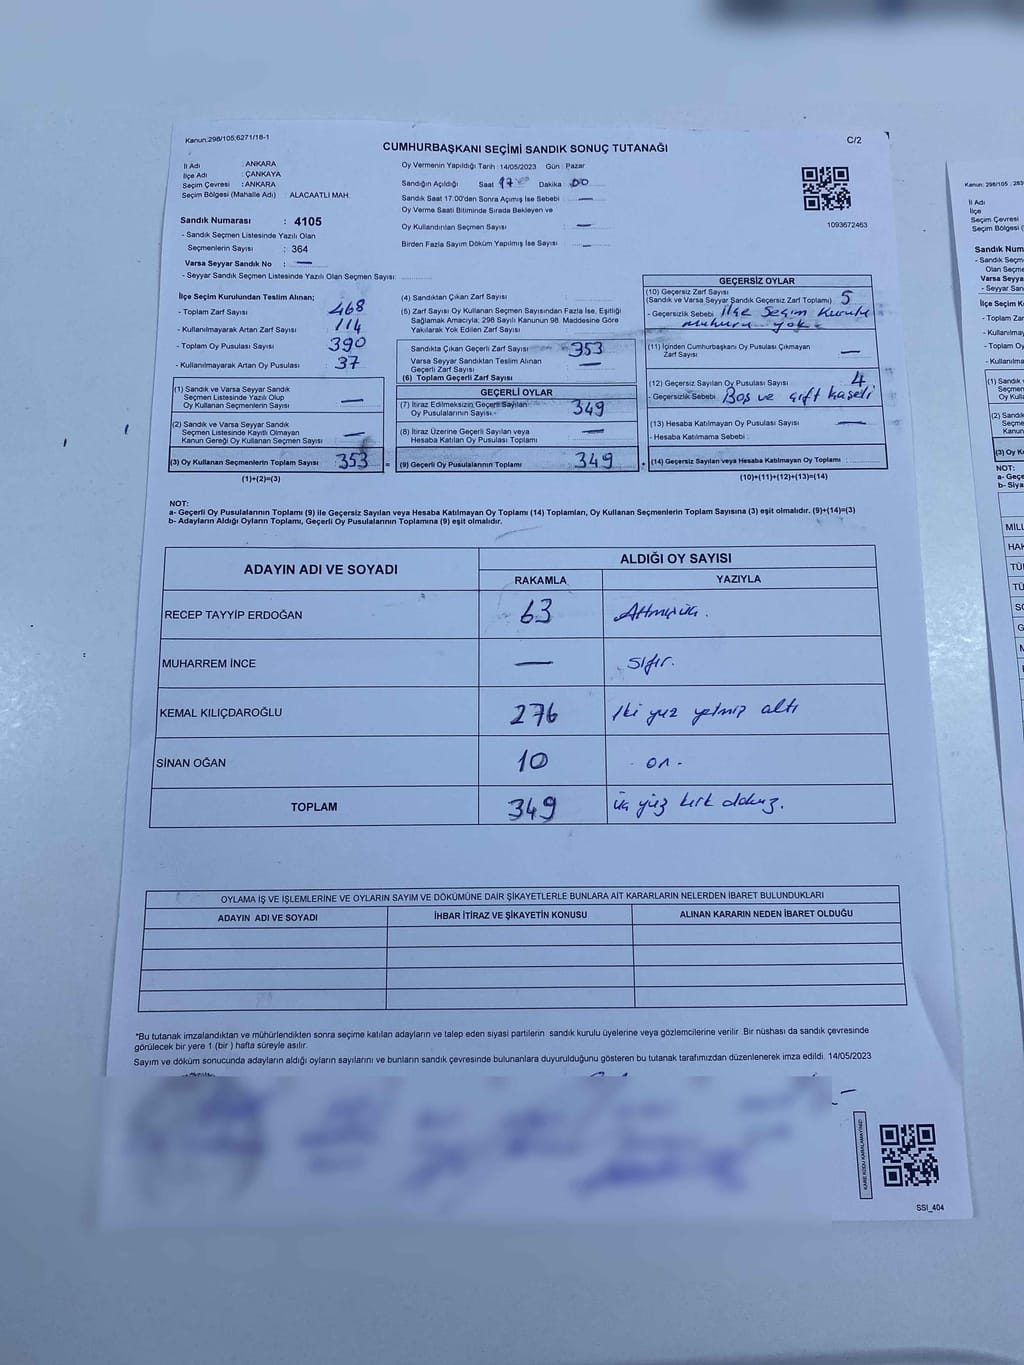 Kanun:298/105;6271/18-1
C/2
CUMHURBAŞKANI SEÇİMİ SANDIK SONUÇ TUTANAĞI
İl Adı : ANKARA
İlçe Adı : ÇANKAYA
Seçim Çevresi : ANKARA
Seçim Bölgesi (Mahalle Adı) : ALACAATLI MAH.
Sandık Numarası : 4105
- Sandık Seçmen Listesinde Yazılı Olan
Seçmenlerin Sayısı : 364
Varsa Seyyar Sandık No : —
- Seyyar Sandık Seçmen Listesinde Yazılı Olan Seçmen Sayısı:
Oy Vermenin Yapıldığı Tarih :14/05/2023 Gün : Pazar
Sandığın Açıldığı Saat 17 Dakika 00
Sandık Saat 17.00'den Sonra Açılmış İse Sebebi : —
Oy Verme Saati Bitiminde Sırada Bekleyen ve
Oy Kullandırılan Seçmen Sayısı : —
Birden Fazla Sayım Döküm Yapılmış İse Sayısı : —
1093672463
İlçe Seçim Kurulundan Teslim Alınan;
- Toplam Zarf Sayısı : 468
- Kullanılmayarak Artan Zarf Sayısı : 114
- Toplam Oy Pusulası Sayısı : 390
- Kullanılmayarak Artan Oy Pusulası : 37
(1) Sandık ve Varsa Seyyar Sandık
Seçmen Listesinde Yazılı Olup
Oy Kullanan Seçmenlerin Sayısı : —
(2) Sandık ve Varsa Seyyar Sandık
Seçmen Listesinde Kayıtlı Olmayan
Kanun Gereği Oy Kullanan Seçmen Sayısı : —
(3) Oy Kullanan Seçmenlerin Toplam Sayısı : 353
(1)+(2)=(3)
(4) Sandıktan Çıkan Zarf Sayısı :
(5) Zarf Sayısı Oy Kullanan Seçmen Sayısından Fazla İse, Eşitliği
Sağlamak Amacıyla; 298 Sayılı Kanunun 98. Maddesine Göre
Yakılarak Yok Edilen Zarf Sayısı :
Sandıkta Çıkan Geçerli Zarf Sayısı : 353
Varsa Seyyar Sandıktan Teslim Alınan
Geçerli Zarf Sayısı : —
(6) Toplam Geçerli Zarf Sayısı
GEÇERLİ OYLAR
(7) İtiraz Edilmeksizin Geçerli Sayılan
Oy Pusulalarının Sayısı : 349
(8) İtiraz Üzerine Geçerli Sayılan veya
Hesaba Katılan Oy Pusulası Toplamı : —
= (9) Geçerli Oy Pusulalarının Toplamı : 349
GEÇERSİZ OYLAR
(10) Geçersiz Zarf Sayısı
(Sandık ve Varsa Seyyar Sandık Geçersiz Zarf Toplamı) : 5
- Geçersizlik Sebebi : İlçe Seçim Kurulu
mühürü yok
(11) İçinden Cumhurbaşkanı Oy Pusulası Çıkmayan
Zarf Sayısı : —
(12) Geçersiz Sayılan Oy Pusulası Sayısı : 4
- Geçersizlik Sebebi : Boş ve çift kaşeli
(13) Hesaba Katılmayan Oy Pusulası Sayısı : —
- Hesaba Katılmama Sebebi :
+ (14) Geçersiz Sayılan veya Hesaba Katılmayan Oy Toplamı :
(10)+(11)+(12)+(13)=(14)
NOT:
a- Geçerli Oy Pusulalarının Toplamı (9) ile Geçersiz Sayılan veya Hesaba Katılmayan Oy Toplamı (14) Toplamları, Oy Kullanan Seçmenlerin Toplam Sayısına (3) eşit olmalıdır. (9)+(14)=(3)
b- Adayların Aldığı Oyların Toplamı, Geçerli Oy Pusulalarının Toplamına (9) eşit olmalıdır.
ADAYIN ADI VE SOYADI ALDIĞI OY SAYISI
RAKAMLA YAZIYLA
RECEP TAYYİP ERDOĞAN 63 Altmışüç.
MUHARREM İNCE — sıfır.
KEMAL KILIÇDAROĞLU 276 İki yüz yetmiş altı
SİNAN OĞAN 10 on
TOPLAM 349 üç yüz kırk dokuz.
OYLAMA İŞ VE İŞLEMLERİNE VE OYLARIN SAYIM VE DÖKÜMÜNE DAİR ŞİKAYETLERLE BUNLARA AİT KARARLARIN NELERDEN İBARET BULUNDUKLARI
ADAYIN ADI VE SOYADI İHBAR İTİRAZ VE ŞİKAYETİN KONUSU ALINAN KARARIN NEDEN İBARET OLDUĞU
*Bu tutanak imzalandıktan ve mühürlendikten sonra seçime katılan adayların ve talep eden siyasi partilerin sandık kurulu üyelerine veya gözlemcilerine verilir. Bir nüshası da sandık çevresinde
görülecek bir yere 1 (bir ) hafta süreyle asılır.
Sayım ve döküm sonucunda adayların aldığı oyların sayılarını ve bunların sandık çevresinde bulunanlara duyurulduğunu gösteren bu tutanak tarafımızdan düzenlenerek imza edildi. 14/05/2023
KARE KODU KARALAMAYINIZ!
SSI_404